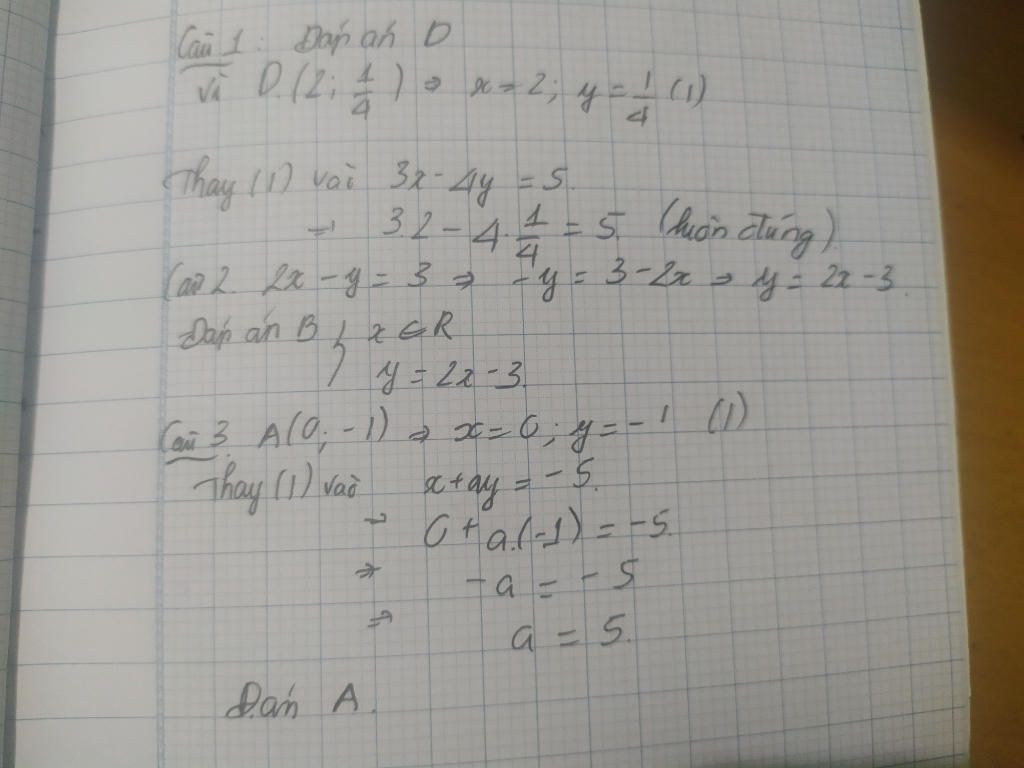 Câu 1: Đáp án D
vì D.(2; 1/4) => x = 2; y = 1/4 (1)
Thay (1) vào 3x - 4y = 5.
=> 3.2 - 4. 1/4 = 5. (luôn đúng)
Câu 2. 2x - y = 3 => -y = 3 - 2x => y = 2x - 3.
Đáp án B { x ∈ R
y = 2x - 3.
Câu 3. A(0; -1) => x = 0; y = -1 (1)
Thay (1) vào x + ay = -5.
=> 0 + a.(-1) = -5.
=> -a = -5
=> a = 5.
Đán A.